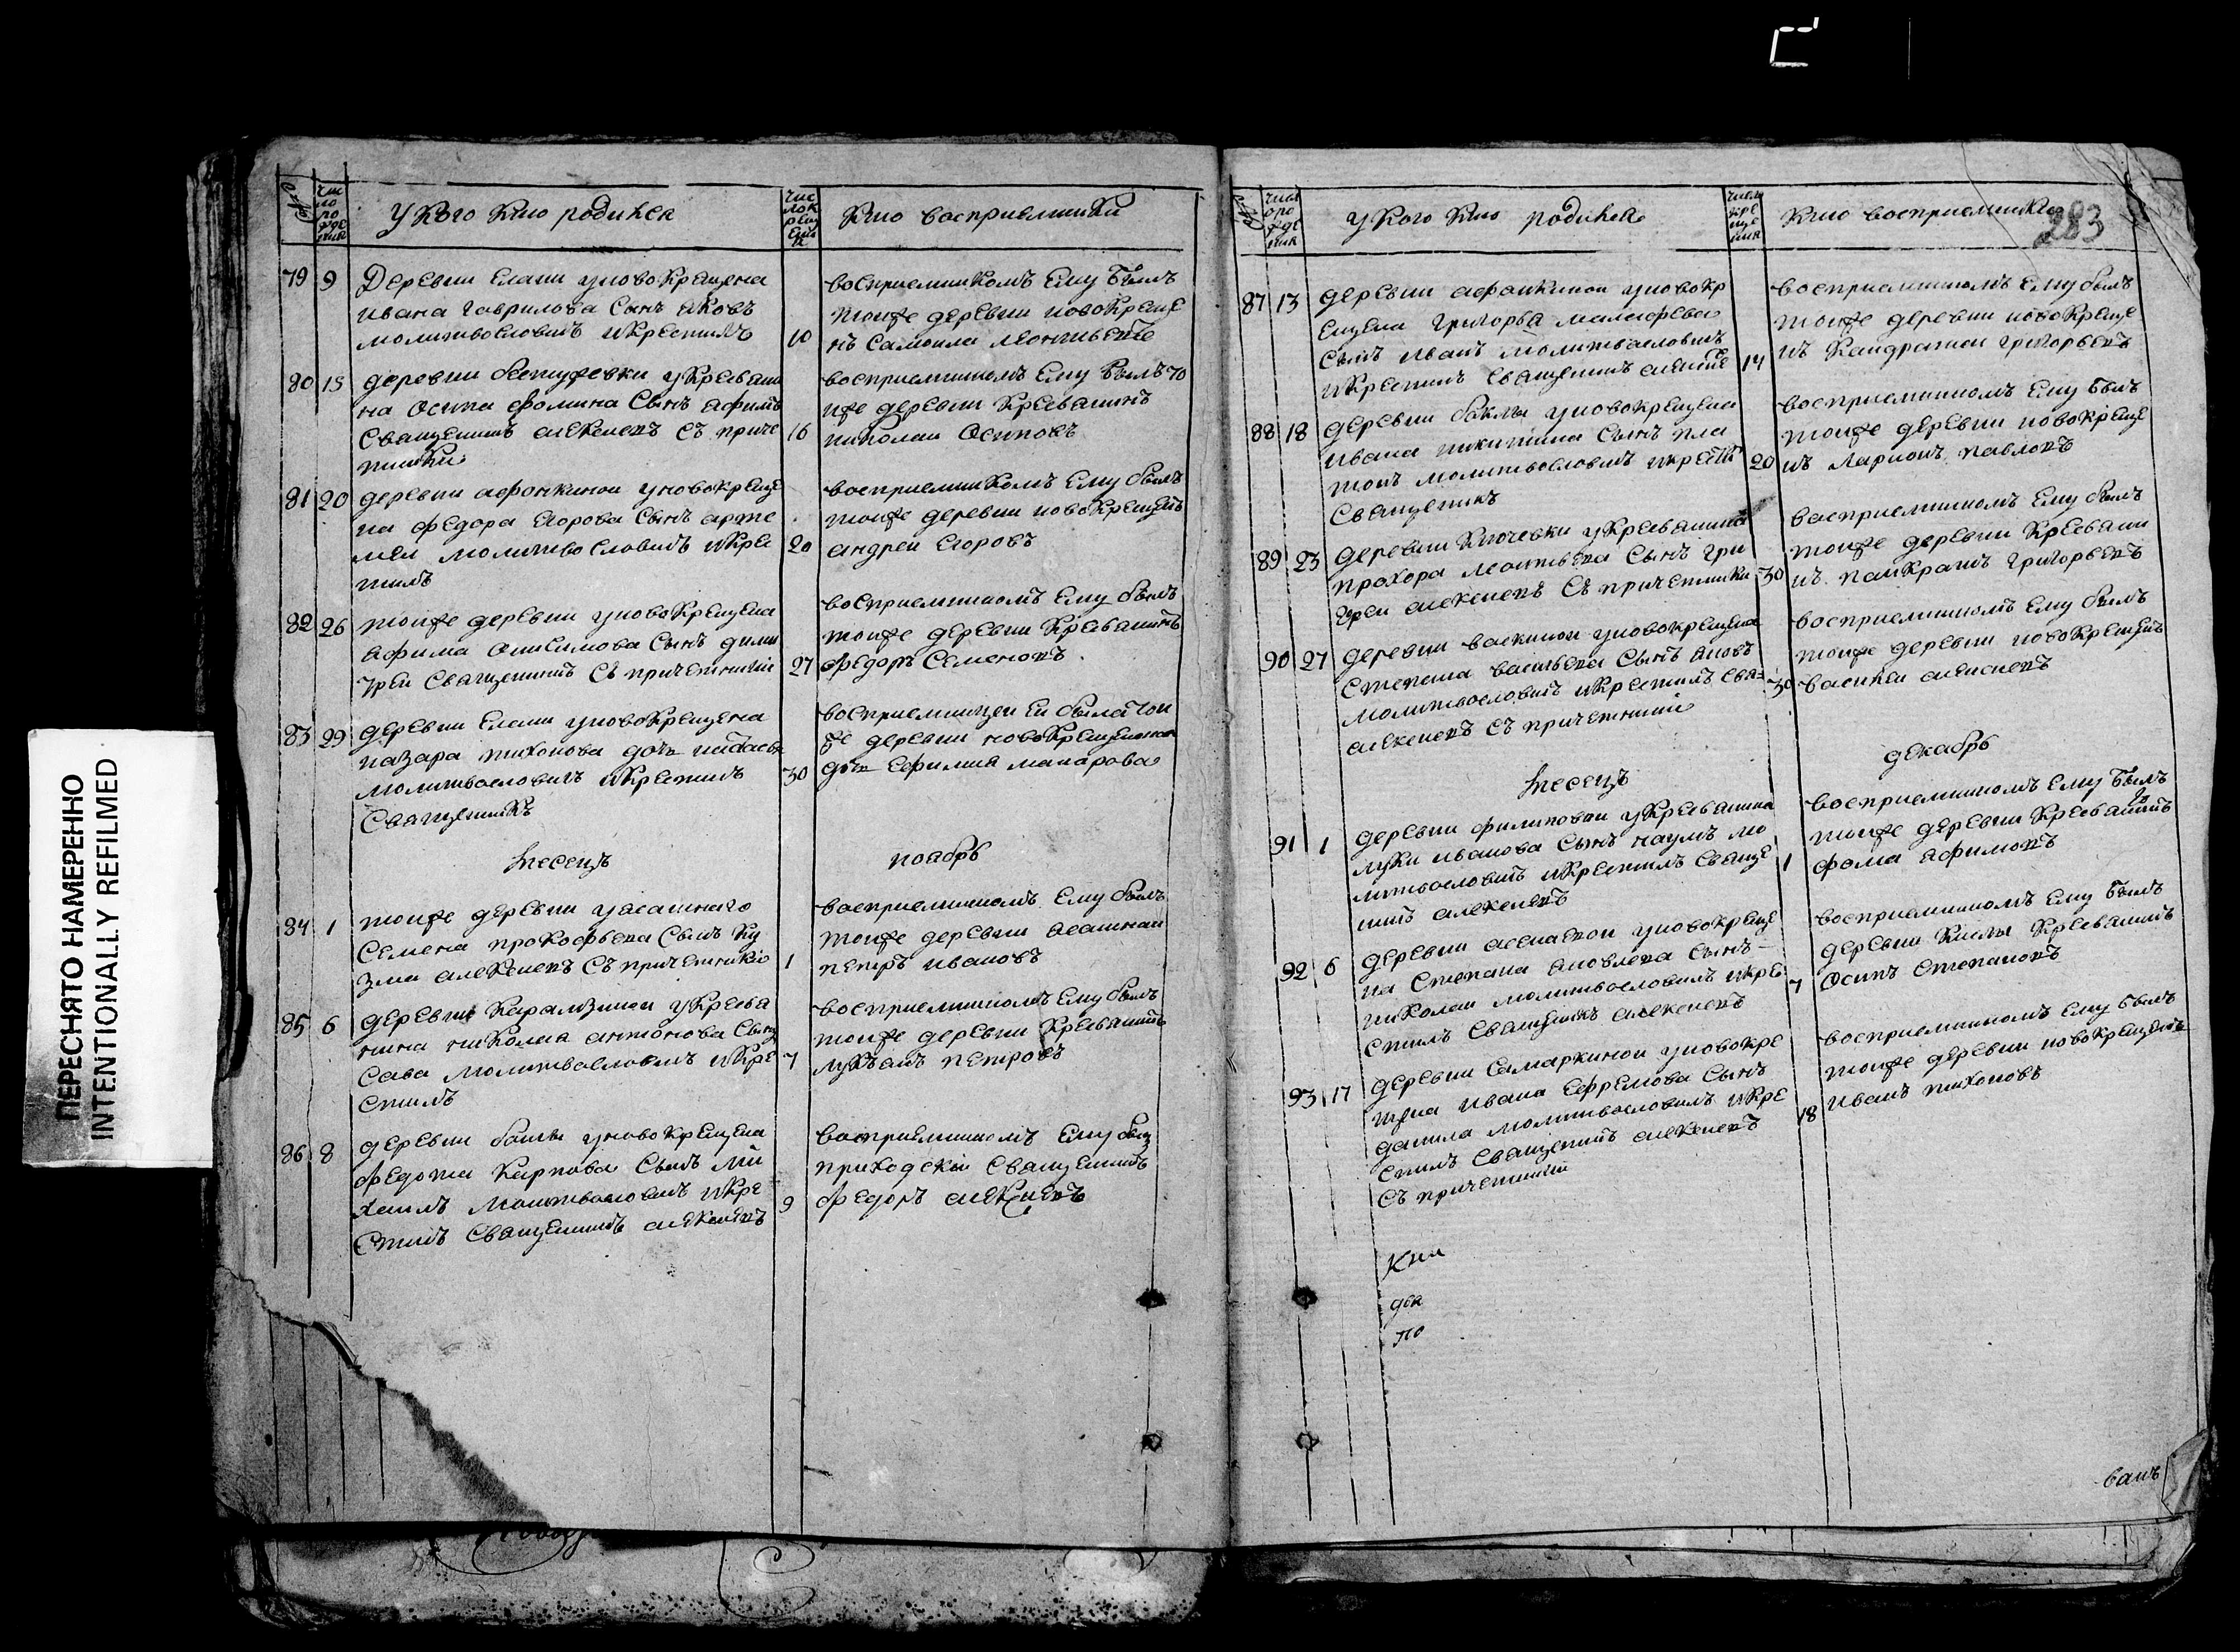 ПЕРЕСНЯТО НАМЕРЕННО
INTENTIONALLY REFILMED
№
чис
ло
ро
жде
ния
У кого кто родился
чис
ло к
рещ
ени
я
Кто восприемники
79 9 Деревни Елани уновокрещена
ивана гаврилова Сынъ яковъ
молитвословилъ икрестилъ
10
восприемникомъ Ему былъ
тоиже деревни новокреще
нъ Самоила леонтьевъ
80 15 деревни бестужевки укрестьяни
на Осипа фомина Сынъ афимъ
Священникъ алексеевъ съ приче
тники
16
восприемникомъ Ему былъ то
иже деревни Крестьянинъ
николаи Осиповъ
81 20 деревни афонкинои уновокреще
на федора Егорова Сынъ арте
меи молитвословилъ икрес
тилъ
20
восприемникомъ Ему былъ
тоиже деревни новокрещенъ
андреи Егоровъ
82 26 тоиже деревни уновокрещена
афима Онисимова Сынъ дими
треи Священникъ Съ причетники
27
восприемникомъ Ему былъ
тоиже деревни Крестьянинъ
федоръ Семеновъ
83 29 деревни Елани уновокрещена
назара тихонова дочь настасья
молитвословилъ икрестилъ
Священникъ
30
восприемницеи Еи была тои
же деревни новокрещенная
дочь Ефимия макарова
месецъ
ноабрь
84 1 тоиже деревни уясашнаго
Семена прокофьева Сынъ ку
зма алексеевъ Съ причетники
1
восприемникомъ Ему былъ
тоиже деревни ясашнаи
петръ ивановъ
85 6 деревни Карамзинои укрестья
нина николая антонова Сынъ
Сава молитвословилъ икре
стилъ
7
восприемникомъ Ему былъ
тоиже деревни Крестьянинъ
лукъянъ петровъ
86 8 деревни баклы уновокрещена
федота Карпова Сынъ ми
хаилъ молитвословилъ икре
стилъ Священникъ алексеевъ
9
восприемникомъ Ему былъ
приходскои Священникъ
федоръ алексеевъ
№
число
ро
жде
ния
у кого кто родился
число
кре
ще
ния
Кто восприемники
283
87 13 деревни афонкинои уновокр
ещена григорья малафеева
Сынъ иванъ молитвословилъ
икрестилъ Священникъ алексеевъ
14
восприемникомъ Ему былъ
тоиже деревни новокреще
нъ Кандратеи григорьевъ
88 18 деревни баклы уновокрещена
ивана никитина Сынъ пла
тонъ молитвословилъ икрести
Священникъ
20
восприемникомъ Ему былъ
тоиже деревни новокреще
нъ Ларионъ павловъ
89 23 деревни Ключевки укрестьянина
прохора леонтьева Сынъ гри
гореи алексеевъ Съ причетники
30
восприемникомъ Ему былъ
тоиже деревни Крестьяни
нъ панкратъ григорьевъ
90 27 деревни васкинои уновокрещена
Степана васильева Сынъ яковъ
молитвословилъ икрестилъ Свя
алексеевъ Съ причетники
30
восприемникомъ Ему былъ
тоиже деревни новокрещенъ
василеи алексеевъ
месецъ
декабрь
91 1 деревни филиповки укрестьянина
луки иванова Сынъ наумъ мо
литвословилъ икрестилъ Свяще
никъ алексеевъ
1
восприемникомъ Ему былъ
тоиже деревни Крестьянинъ
фома афимовъ
92 6 деревни уновокреще
на Степана яковлева Сынъ
николаи молитвословилъ икре
стилъ Священникъ алексеевъ
7
восприемникомъ Ему былъ
деревни Крестьянинъ
Осипъ Степановъ
93 17 деревни Самаркинои уновокре
щена ивана Ефремова Сынъ
данила молитвословилъ икре
стилъ Священникъ алексеевъ
Съ причетники
18
восприемникомъ Ему былъ
тоиже деревни новокрещенъ
иванъ тихоновъ
по